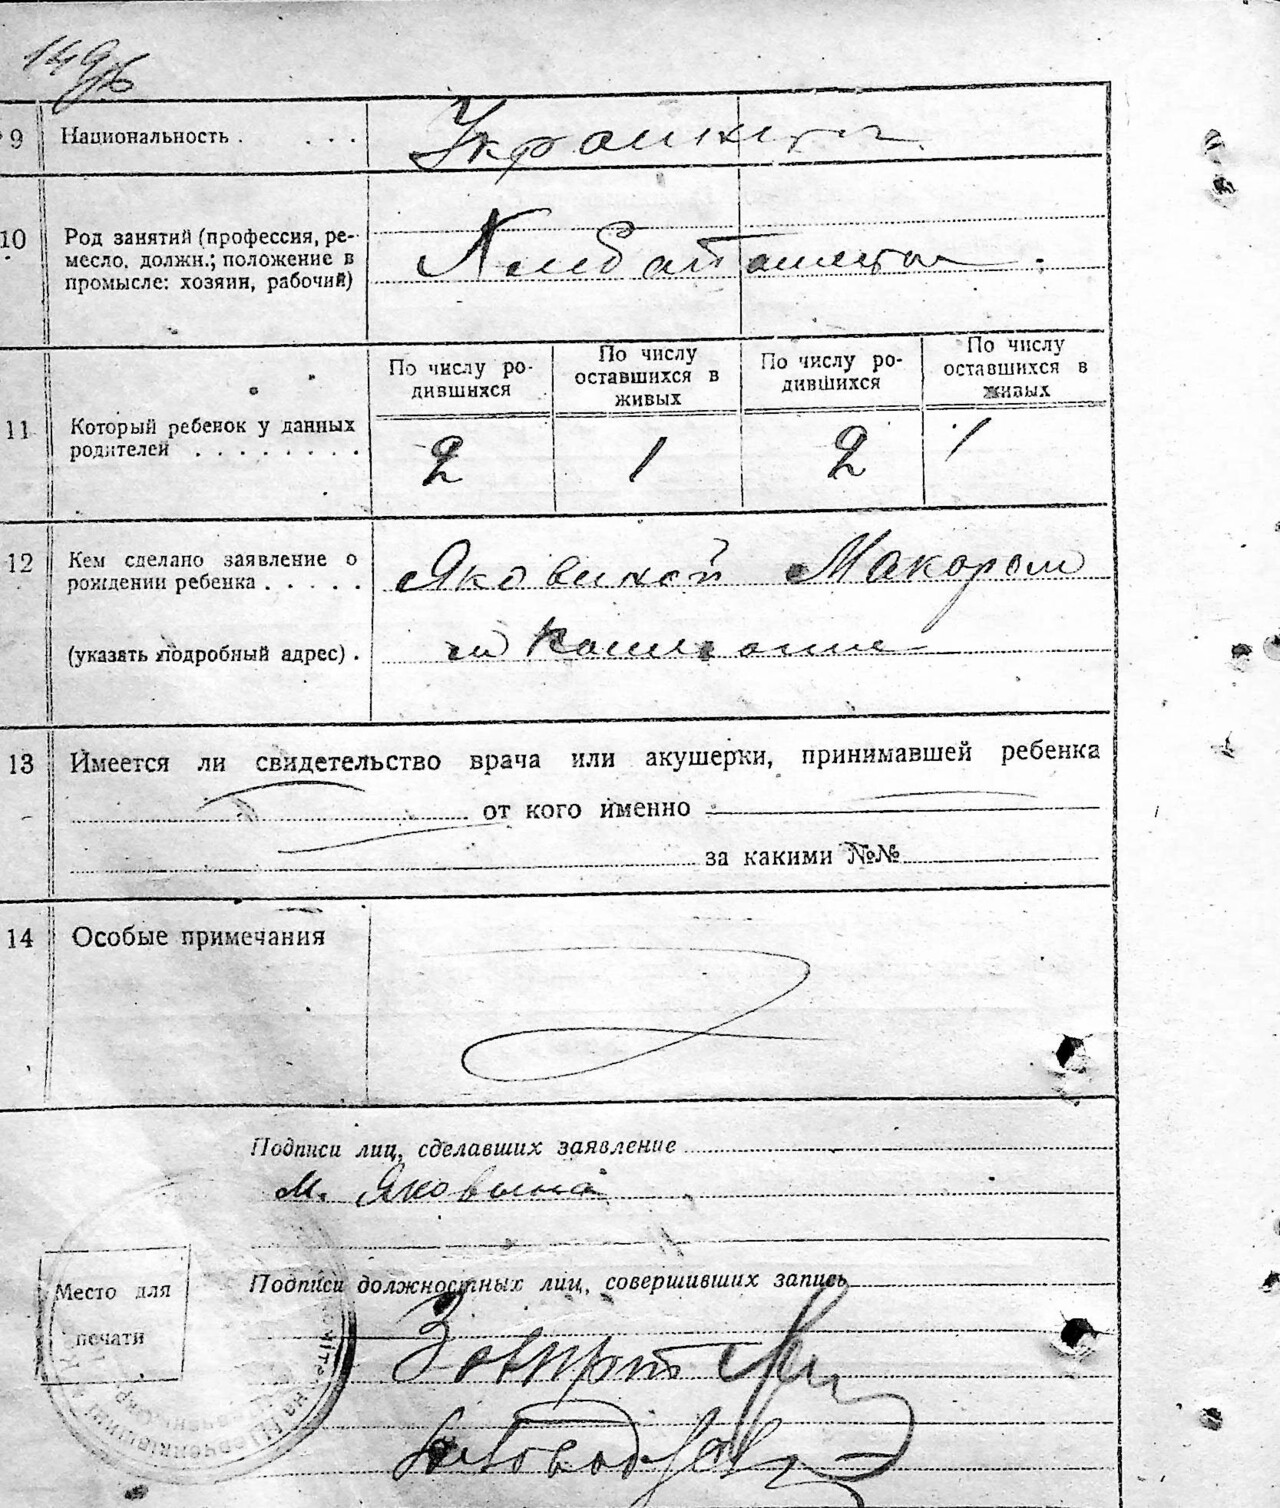 9 Национальность . . . .
Украинцы
10 Род занятий (профессия, ре-
месло, должн.; положение в
промысле: хозяин, рабочий)
Хлебопашцы
По числу ро-
дившихся
По числу
оставшихся в
живых
По числу ро-
дившихся
По числу
оставшихся в
живых
11 Который ребенок у данных
родителей . . . . . . . .
2 1 2 1
12 Кем сделано заявление о
рождении ребенка . . . . .
Яковиной Макором
(указать подробный адрес) .
13 Имеется ли свидетельство врача или акушерки, принимавшей ребенка
от кого именно
за какими №№
14 Особые примечания
Подписи лиц, сделавших заявление
М. Яковына
Подписи должностных лиц, совершивших запись
Место для
печати